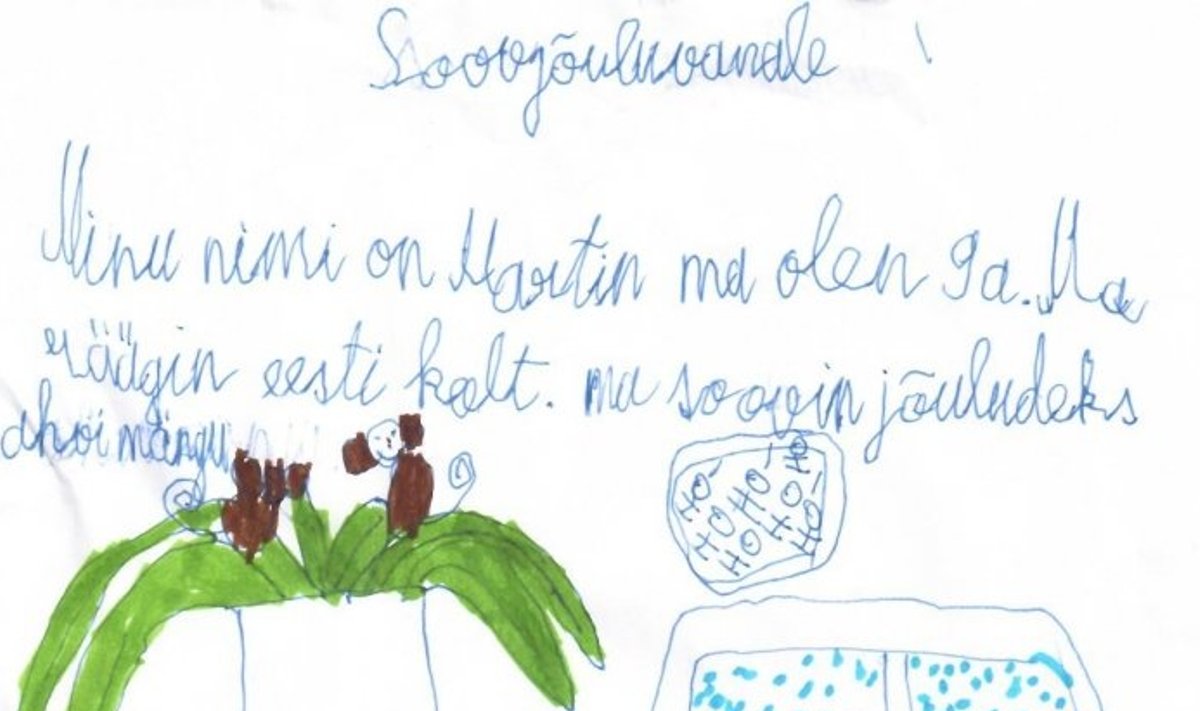 Soovjõuluvanale!
Minu nimi on Martin ma olen 9a. Ma
räägin eesti keelt. ma soovin jõuludeks
ahoi mängu
HO-HO-HO
HO-HO-
HO-HO